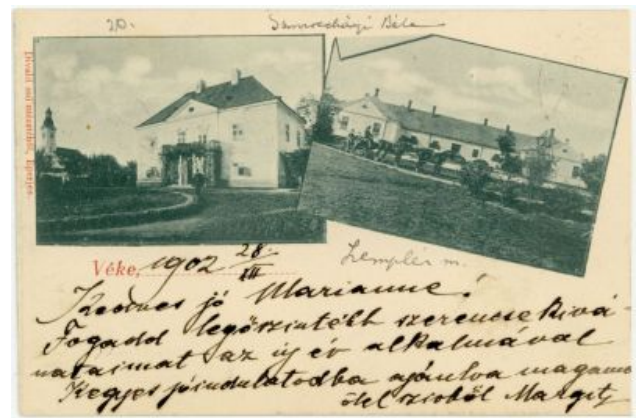 20.
Béla
Divald műintézetéből, Eperjes
Zemplén m.
Véke, 1902 28/XII
Kedves jó Marianne!
Fogadd legőszintébb szerencse kivá-
nataimat az új év alkalmával
Kegyes jóindulatodba ajánlva magam
ölel szívből Margit